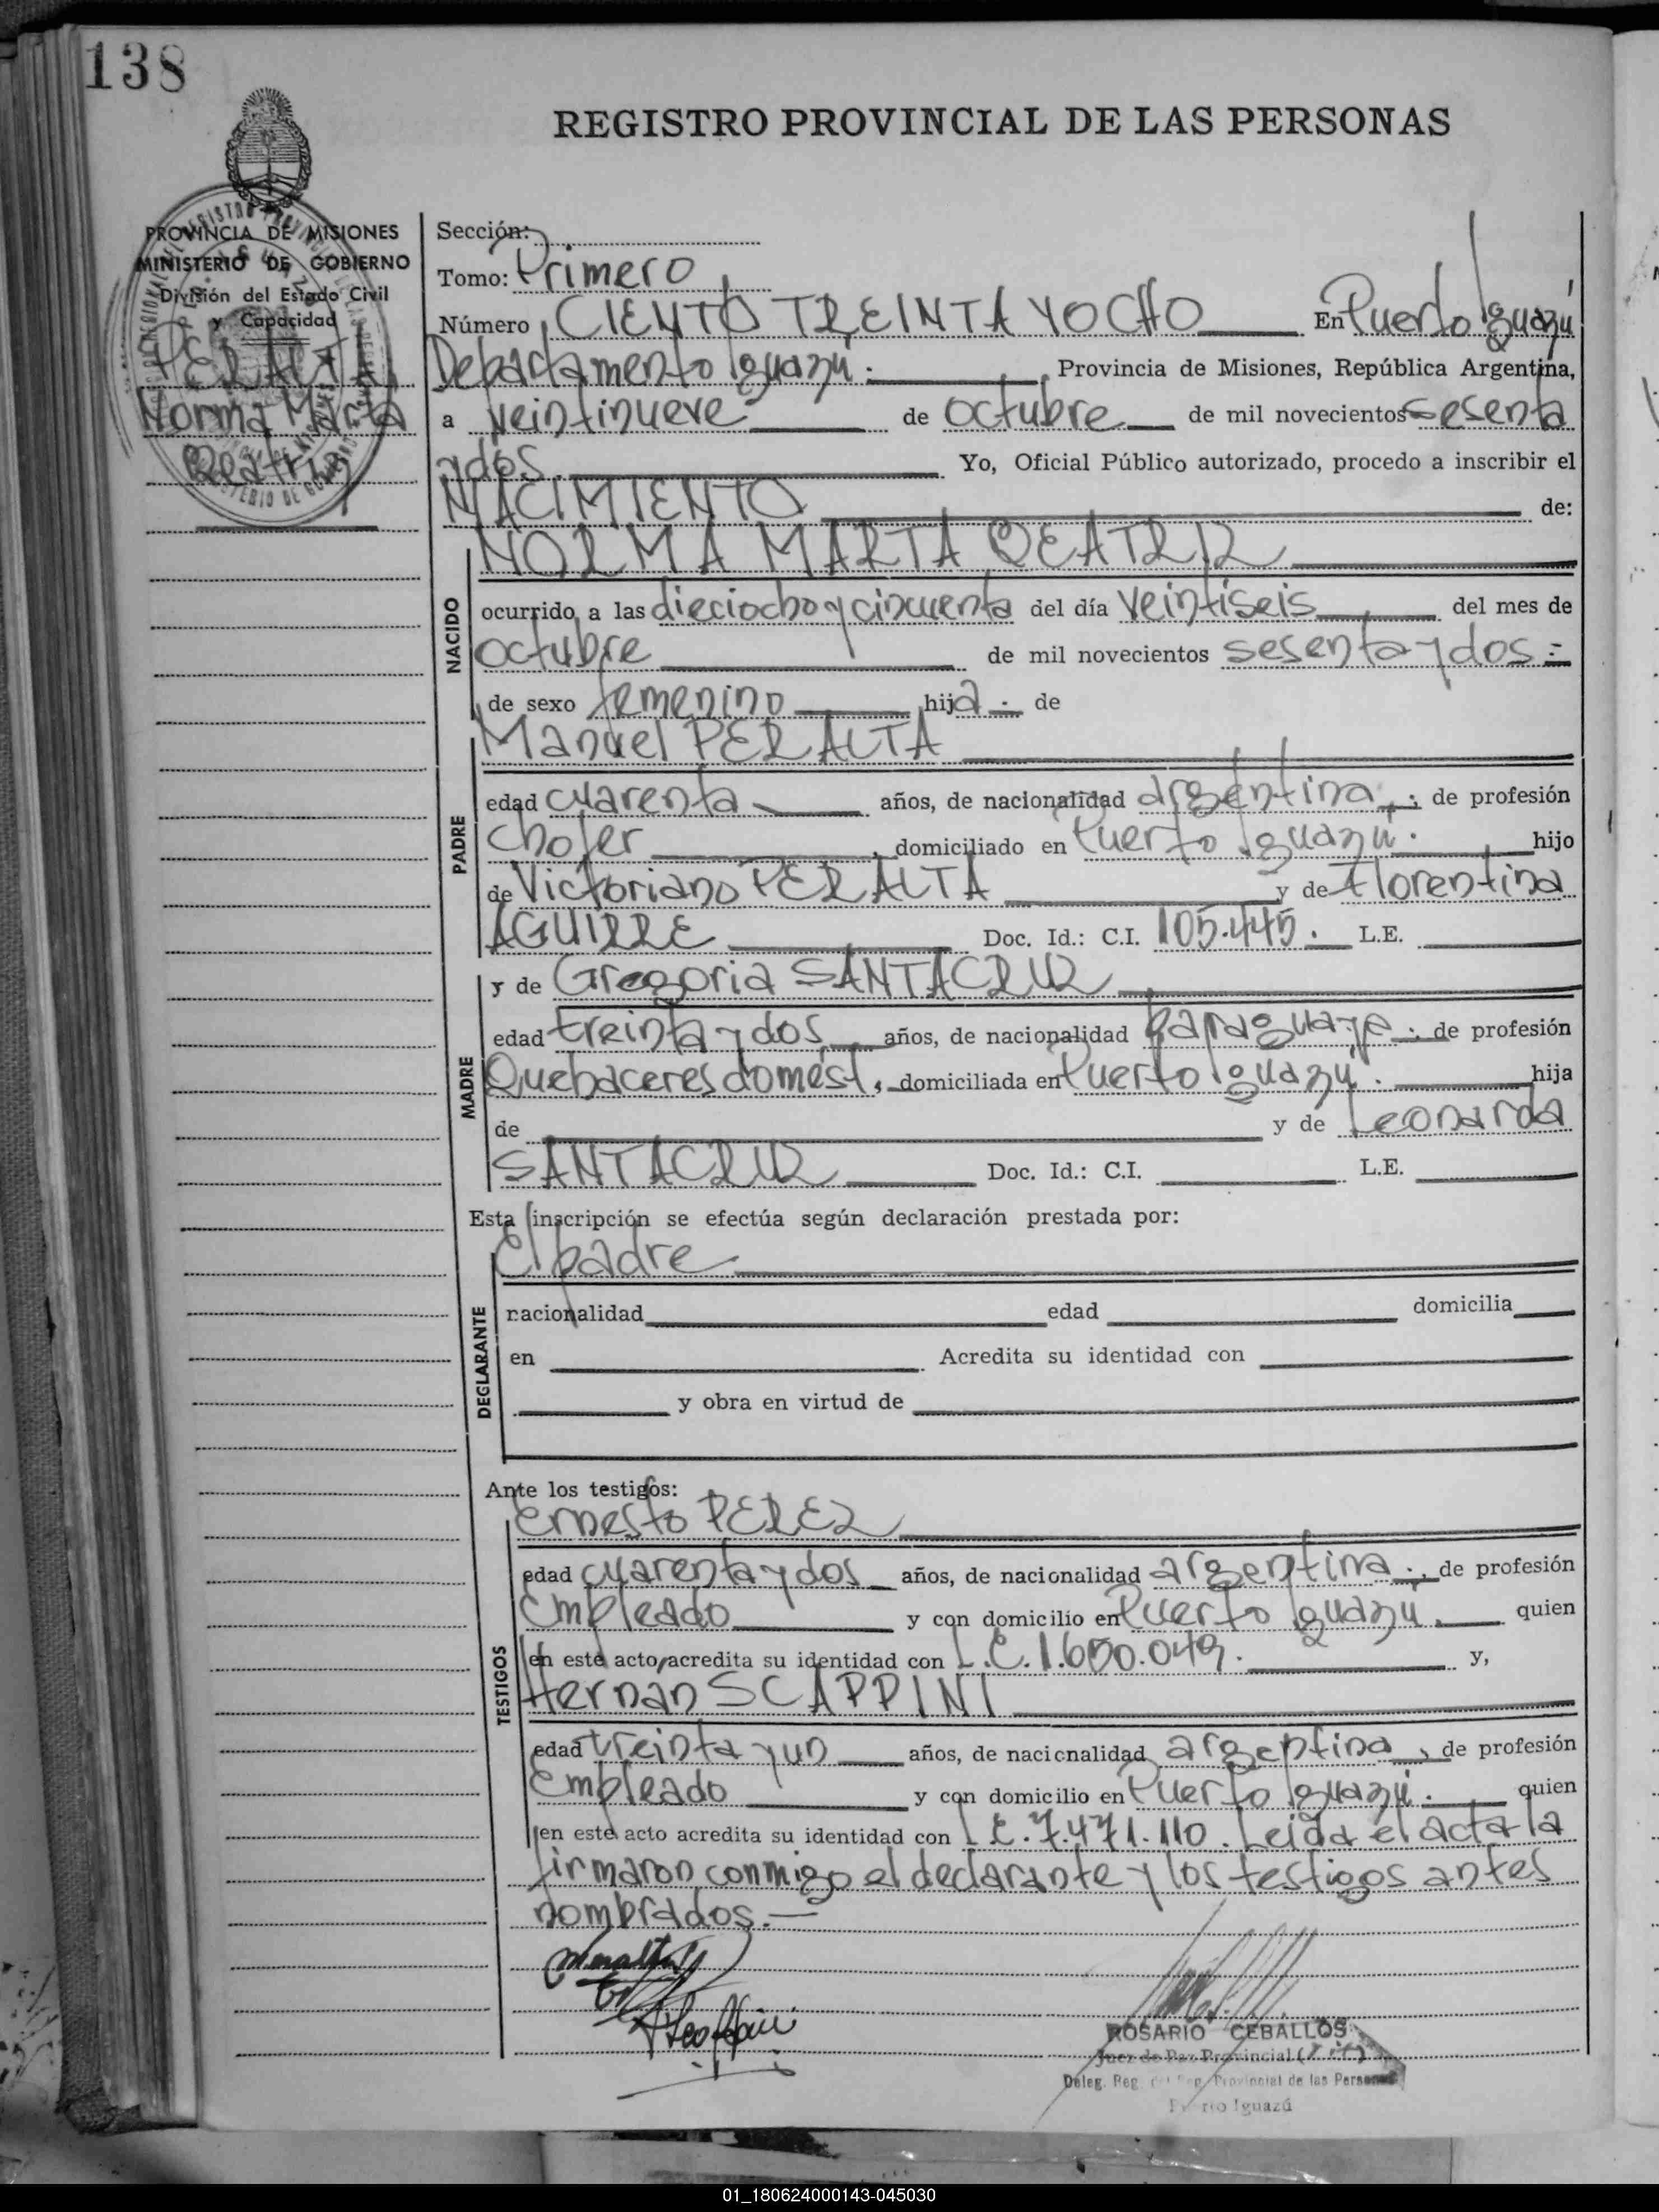 138
REGISTRO PROVINCIAL DE LAS PERSONAS
PROVINCIA DE MISIONES
MINISTERIO DE GOBIERNO
División del Estado Civil
y Capacidad
PERALTA
Norma Marta
Beatriz
Sección:
Tomo: Primero
Número CIENTO TREINTA Y OCHO En Puerto Iguazú
Departamento Iguazú. Provincia de Misiones, República Argentina,
a veintinueve de octubre de mil novecientos sesenta
y dos. Yo, Oficial Público autorizado, procedo a inscribir el
NACIMIENTO de:
NORMA MARTA BEATRIZ
NACIDO
ocurrido a las dieciocho y cincuenta del día veintiseis del mes de
octubre de mil novecientos sesenta y dos.=
de sexo femenino hija. de
Manuel PERALTA
PADRE
edad cuarenta años, de nacionalidad argentina, de profesión
chofer, domiciliado en Puerto Iguazú. hijo
de Victoriano PERALTA y de Florentina
AGUIRRE Doc. Id.: C.I. 105.445. L.E.
y de Gregoria SANTACRUZ
MADRE
edad treinta y dos años, de nacionalidad paraguaya, de profesión
Quehaceres domést., domiciliada en Puerto Iguazú. hija
de y de Leonarda
SANTACRUZ Doc. Id.: C.I. L.E.
Esta inscripción se efectúa según declaración prestada por:
El padre
DECLARANTE
nacionalidad edad domicilia
en Acredita su identidad con
y obra en virtud de
Ante los testigos:
Ernesto PEREZ
TESTIGOS
edad cuarenta y dos años, de nacionalidad argentina, de profesión
Empleado y con domicilio en Puerto Iguazú. quien
en este acto acredita su identidad con L.E. y,
Hernan SCAPPINI
edad treinta y un años, de nacionalidad argentina, de profesión
Empleado y con domicilio en Puerto Iguazú. quien
en este acto acredita su identidad con L.E. 7.471.110. Leida el acta la
firmaron conmigo el declarante y los testigos antes
nombrados.—
ROSARIO CEBALLOS
Juez de Paz Provincial
Deleg. Reg. del Reg. Provincial de las Personas
Puerto Iguazú
01_180624000143-045030